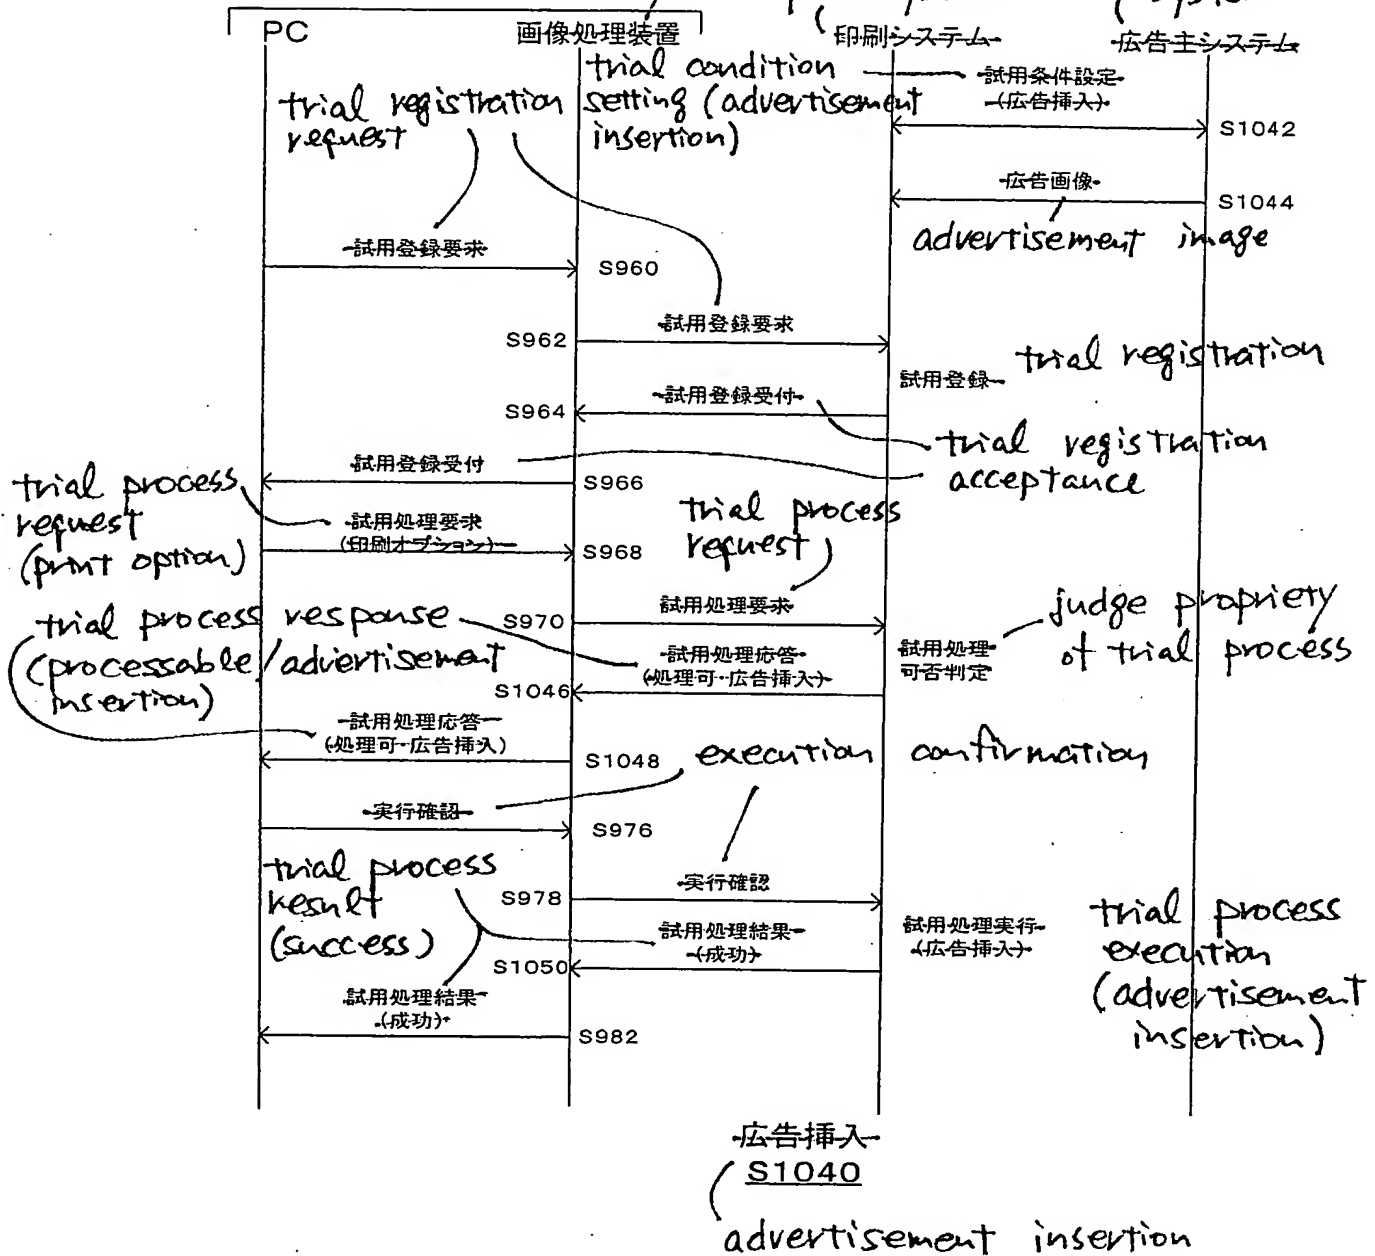 PC
画像処理装置
印刷システム
広告主システム
trial condition
setting (advertisement
insertion)
試用条件設定
(広告挿入)
trial registration
request
S1042
広告画像
S1044
advertisement image
試用登録要求
S960
試用登録要求
S962
試用登録
trial registration
試用登録受付
S964
trial registration
acceptance
試用登録受付
S966
trial process
request
(print option)
試用処理要求
(印刷オプション)
S968
trial process
request
試用処理要求
S970
試用処理
可否判定
judge propriety
of trial process
trial process response
(processable/advertisement
insertion)
試用処理応答
(処理可・広告挿入)
S1046
試用処理応答
(処理可・広告挿入)
S1048
execution confirmation
実行確認
S976
trial process
result
(success)
実行確認
S978
試用処理実行
(広告挿入)
trial process
execution
(advertisement
insertion)
試用処理結果
(成功)
S1050
試用処理結果
(成功)
S982
広告挿入
S1040
advertisement insertion